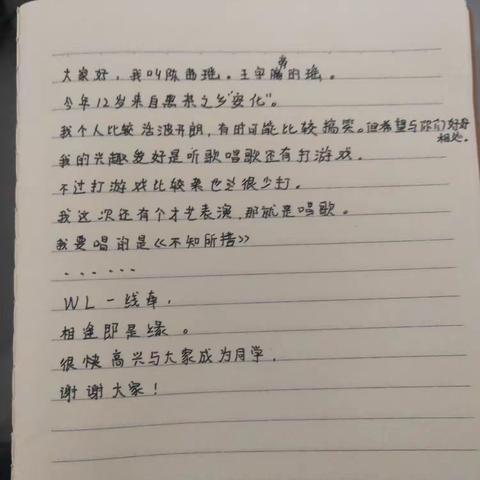 大家好，我叫陈西瑶。王字旁的瑶。
今年12岁来自黑茶之乡"安化"。
我个人比较活波开朗，有时可能比较搞笑。但希望与你们好好相处。
我的兴趣爱好是听歌唱歌还有打游戏.
不过打游戏比较菜也就很少打。
我这次还有个才艺表演,那就是唱歌。
我要唱的是《不知所措》
......
WL一线牵,
相逢即是缘。
很快高兴与大家成为同学,
谢谢大家！